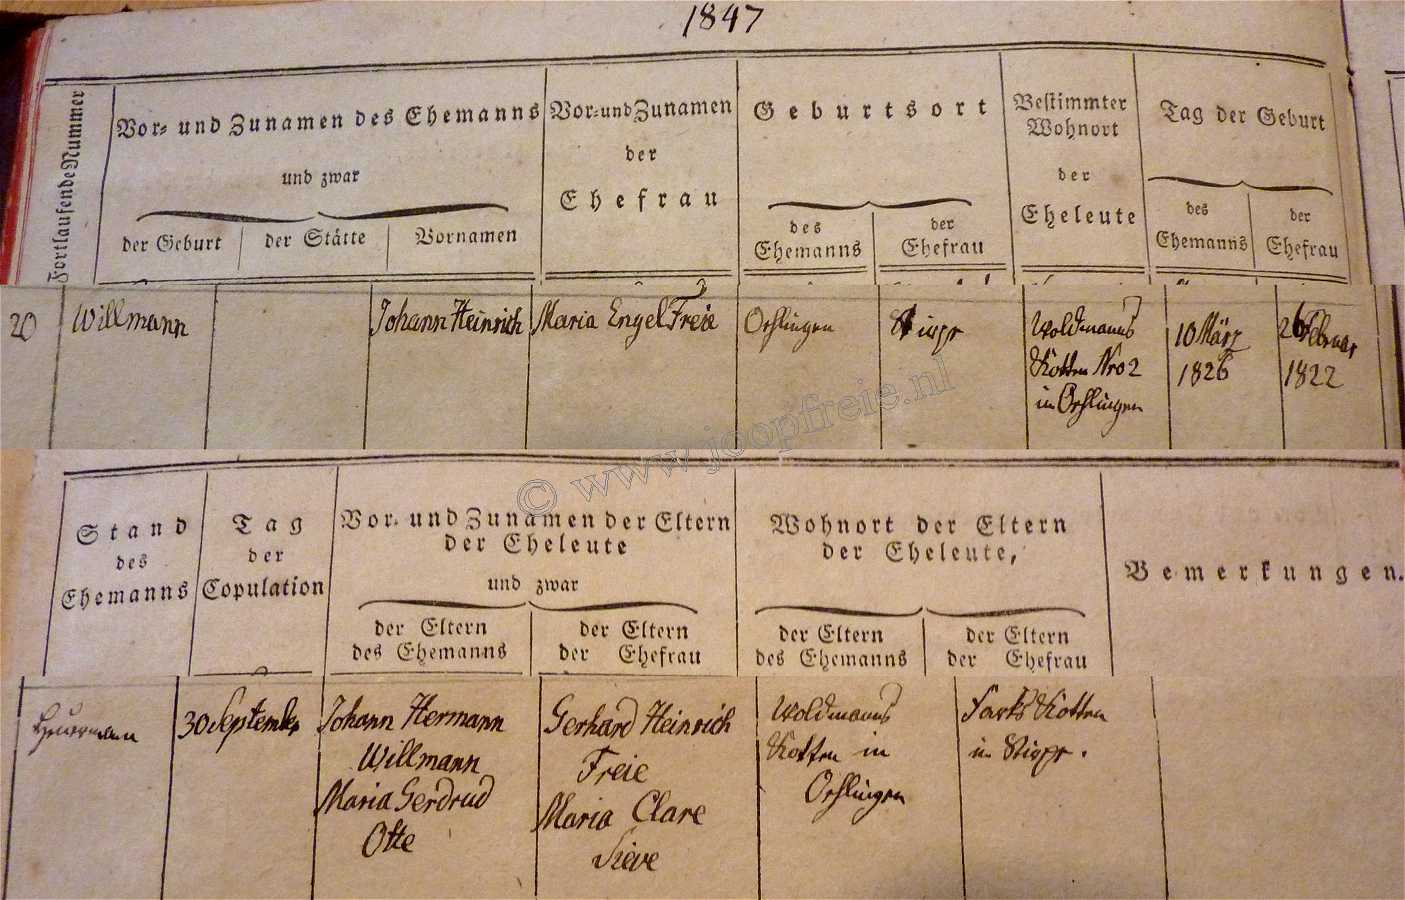 1847
Fortlaufende Nummer
Vor- und Zunamen des Ehemanns
und zwar
der Geburt
der Stätte
Vornamen
Vor- und Zunamen
der
Ehefrau
Geburtsort
des
Ehemanns
der
Ehefrau
Bestimmter
Wohnort
der
Eheleute
Tag der Geburt
des
Ehemanns
der
Ehefrau
20
Willmann
Johann Heinrich
Maria Engel Freie
Oehlingen
Woldmanns
Kotten Nro 2
in Oehlingen
10 März
1826
26 Februar
1822
© www.joopfreie.nl
Stand
des
Ehemanns
Tag
der
Copulation
Vor- und Zunamen der Eltern
der Eheleute
und zwar
der Eltern
des Ehemanns
der Eltern
der Ehefrau
Wohnort der Eltern
der Eheleute,
der Eltern
des Ehemanns
der Eltern
der Ehefrau
Bemerkungen.
Heuermann
30 September
Johann Hermann
Willmann
Maria Gerdrud
Otte
Gerhard Heinrich
Freie
Maria Clare
Sieve
Woldmanns
Kotten in
Oehlingen
Kotten
in